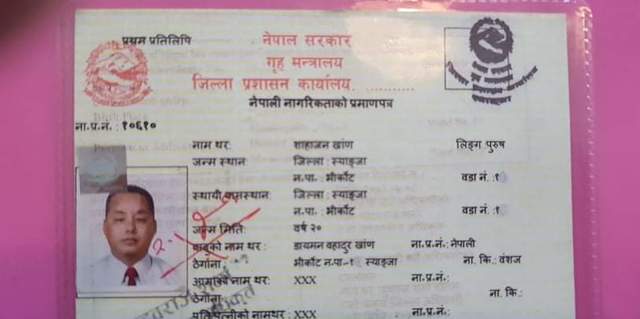 प्रथम प्रतिलिपि
नेपाल सरकार
गृह मन्त्रालय
जिल्ला प्रशासन कार्यालय, ............
नेपाली नागरिकताको प्रमाणपत्र
ना.प्र.नं. : १०६१०
नाम थर: शाहाजन खाँण लिङ्ग पुरुष
जन्म स्थान: जिल्ला : स्याङ्जा
न.पा. : भीर्कोट वडा नं. :१
स्थायी बासस्थान: जिल्ला : स्याङ्जा
न.पा. : भीर्कोट वडा नं. :१
जन्म मिति: वर्ष २०
बाबुको नाम थर : डायमन बहादुर खाँण ना.प्र.नं.: नेपाली
ठेगाना: भीर्कोट न.पा-१ स्याङ्जा ना. कि.: वंशज
आमाको नाम थर: XXX ना.प्र.नं.:
ठेगाना: ना. कि.:
पति/पत्नीको नामथर : XXX ना.प्र.नं.: